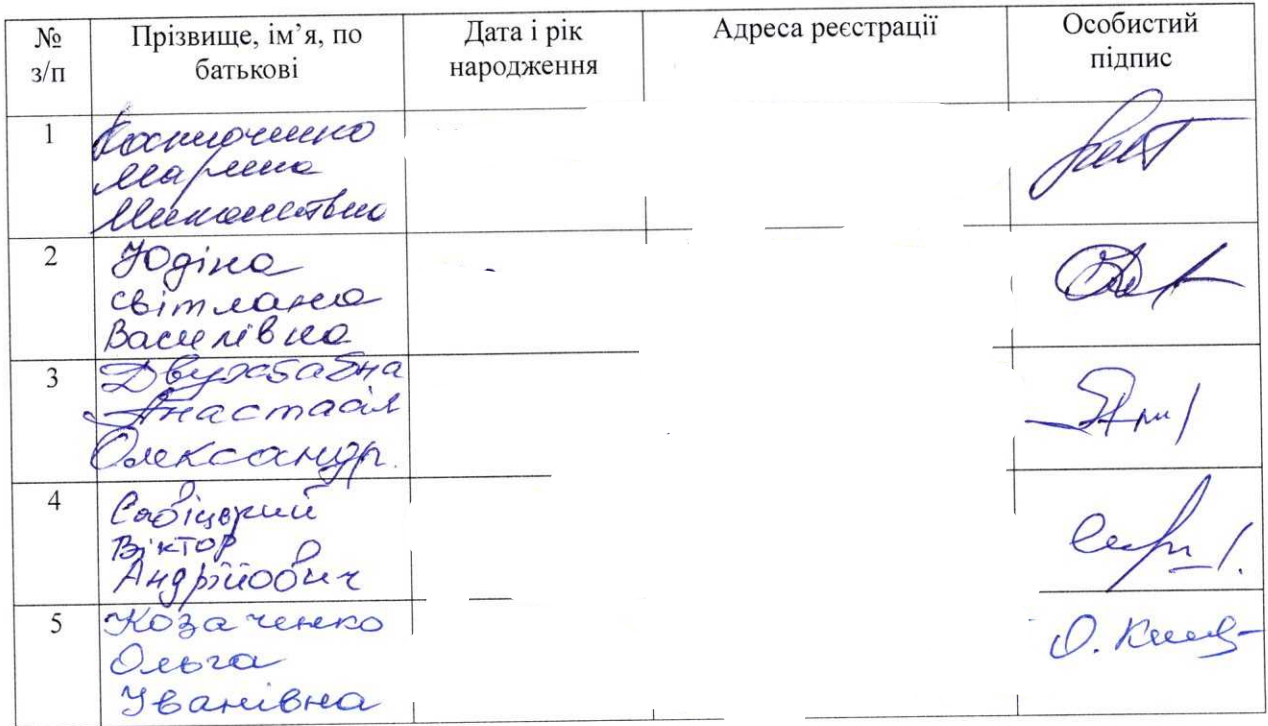 № з/п
Прізвище, ім’я, по батькові
Дата і рік народження
Адреса реєстрації
Особистий підпис
1
Марина
Миколаївна
2
Юдіна
Світлана
Василівна
3
Двухбабна
Анастасія
Олександр.
4
Віктор
Андрійович
5
Козаченко
Ольга
Іванівна